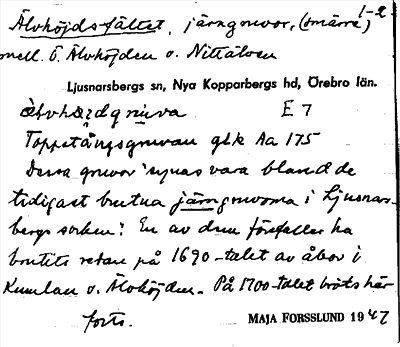 Älvhöjdsfältet, järngruvor, (smärre) 1-2
mell. Ö. Älvhöjden o. Nittälven
Ljusnarsbergs sn, Nya Kopparbergs hd, Örebro län.
E 7
Toppetångsgruvan glk Aa 175
Dessa gruvor synas vara bland de
tidigast brutna järngruvorna i Ljusnars-
bergs socken: En av dem förefaller ha
brutits redan på 1690-talet av åbor i
Kumlan o. Älvhöjden. På 1700-talet bröts här
forts.
MAJA FORSSLUND 1947